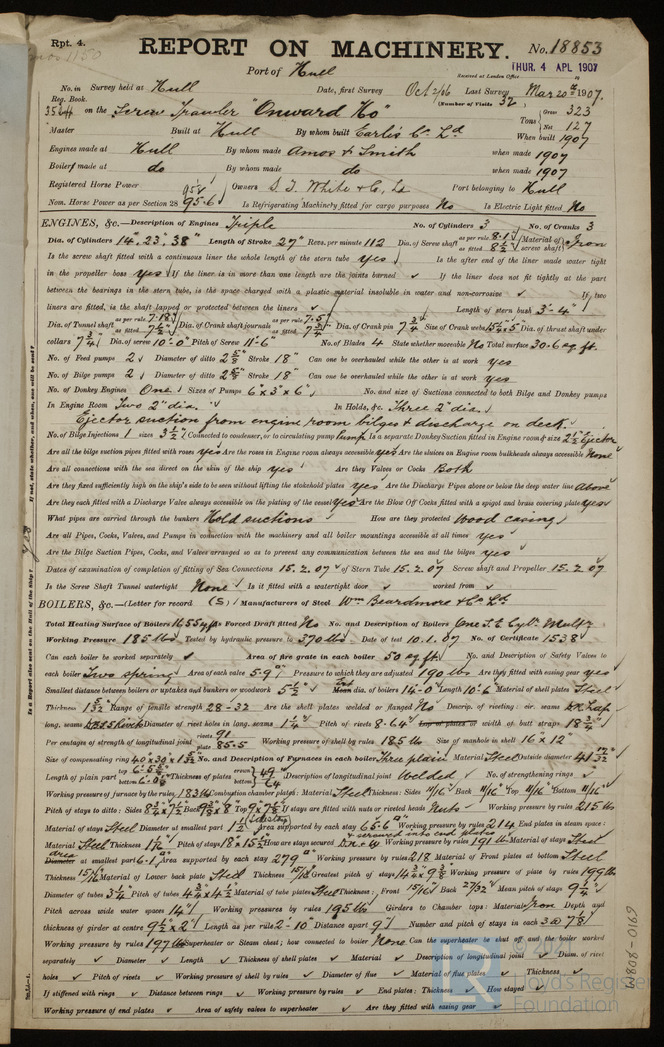 Rpt. 4.
REPORT ON MACHINERY. No. 18853
Port of Hull
Received at London Office THUR. 4 APL 1907
No. in Survey held at Hull Date, first Survey Oct 2/06 Last Survey Mar 20th 1907.
Reg. Book. (Number of Visits 32)
3524 on the Screw Trawler "Onward Ho" Tons { Gross 323
Net 127
Master Built at Hull By whom built Earle's Co. Ld When built 1907
Engines made at Hull By whom made Amos & Smith when made 1907
Boilers made at do By whom made do when made 1907
Registered Horse Power Owners Port belonging to Hull
Nom. Horse Power as per Section 28 95.6 Is Refrigerating Machinery fitted for cargo purposes No Is Electric Light fitted No
ENGINES, &c.—Description of Engines Triple No. of Cylinders 3 No. of Cranks 3
Dia. of Cylinders 14", 23", 38" Length of Stroke 27" Revs. per minute 112 Dia. of Screw shaft as per rule 8.1 as fitted 8½ Material of screw shaft Iron
Is the screw shaft fitted with a continuous liner the whole length of the stern tube yes Is the after end of the liner made water tight
in the propeller boss yes If the liner is in more than one length are the joints burned ✓ If the liner does not fit tightly at the part
between the bearings in the stern tube, is the space charged with a plastic material insoluble in water and non-corrosive ✓ If two
liners are fitted, is the shaft lapped or protected between the liners ✓ Length of stern bush 3'-4"
Dia. of Tunnel shaft as per rule 7.18 as fitted Dia. of Crank shaft journals as per rule 7.5 as fitted 7¾ Dia. of Crank pin 7¾ Size of Crank webs Dia. of thrust shaft under
collars 7¾ Dia. of screw 10'-0" Pitch of Screw 11'-6" No. of Blades 4 State whether moveable No Total surface 30.6 sq. ft.
No. of Feed pumps 2 Diameter of ditto 2⅝ Stroke 18" Can one be overhauled while the other is at work yes
No. of Bilge pumps 2 Diameter of ditto 2⅝ Stroke 18" Can one be overhauled while the other is at work yes
No. of Donkey Engines One Sizes of Pumps 6" x 3" x 6" No. and size of Suctions connected to both Bilge and Donkey pumps
In Engine Room Two 2" dia. In Holds, &c. Three 2" dia.
Ejector suction from engine room bilges & discharge on deck.
No. of Bilge Injections 1 sizes 3½" Connected to condenser, or to circulating pump Pump Is a separate Donkey Suction fitted in Engine room & size 2½" Ejector
Are all the bilge suction pipes fitted with roses yes Are the roses in Engine room always accessible yes Are the sluices on Engine room bulkheads always accessible None
Are all connections with the sea direct on the skin of the ship yes Are they Valves or Cocks Both
Are they fixed sufficiently high on the ship's side to be seen without lifting the stokehold plates yes Are the Discharge Pipes above or below the deep water line Above
Are they each fitted with a Discharge Valve always accessible on the plating of the vessel yes Are the Blow Off Cocks fitted with a spigot and brass covering plate yes
What pipes are carried through the bunkers Hold suctions How are they protected Wood casing
Are all Pipes, Cocks, Valves, and Pumps in connection with the machinery and all boiler mountings accessible at all times yes
Are the Bilge Suction Pipes, Cocks, and Valves arranged so as to prevent any communication between the sea and the bilges yes
Dates of examination of completion of fitting of Sea Connections 15.2.07 of Stern Tube 15.2.07 Screw shaft and Propeller 15.2.07
Is the Screw Shaft Tunnel watertight None Is it fitted with a watertight door ✓ worked from ✓
BOILERS, &c.—(Letter for record (S)) Manufacturers of Steel Wm Beardmore & Co. Ld.
Total Heating Surface of Boilers Is Forced Draft fitted No No. and Description of Boilers One S.E. Cyl. Mult.
Working Pressure 185 lbs Tested by hydraulic pressure to 370 lbs Date of test 10.1.07 No. of Certificate 1538
Can each boiler be worked separately ✓ Area of fire grate in each boiler 50 sq. ft. No. and Description of Safety Valves to
each boiler Two spring Area of each valve 5.9" Pressure to which they are adjusted 190 lbs Are they fitted with easing gear yes
Smallest distance between boilers or uptakes and bunkers or woodwork 5½" Mean dia. of boilers 14'-0" Length 10'-6" Material of shell plates Steel
Thickness 1 5/32 Range of tensile strength 28-32 Are the shell plates welded or flanged No Descrip. of riveting: cir. seams DR Lap
long. seams Diameter of rivet holes in long. seams 1¼" Pitch of rivets 8.64" Lap of plates or width of butt straps 18¾"
Per centages of strength of longitudinal joint rivets 91 plate 85.5 Working pressure of shell by rules 185 lbs Size of manhole in shell 16" x 12"
Size of compensating ring No. and Description of Furnaces in each boiler Three plain Material Steel Outside diameter
Length of plain part top bottom Thickness of plates crown bottom Description of longitudinal joint Welded No. of strengthening rings ✓
Working pressure of furnace by the rules 183 lbs Combustion chamber plates: Material Steel Thickness: Sides 11/16" Back 11/16" Top 11/16" Bottom 11/16"
Pitch of stays to ditto: Sides Back Top If stays are fitted with nuts or riveted heads Nuts Working pressure by rules 215 lbs
Material of stays Steel Diameter at smallest part Area supported by each stay 65.6" Working pressure by rules 214 End plates in steam space:
Material Steel Thickness Pitch of stays 18" x 15½" How are stays secured DN & W & screwed into end plates Working pressure by rules 191 lbs Material of stays Steel
Area at smallest part 6.1" Area supported by each stay 279" Working pressure by rules 218 Material of Front plates at bottom Steel
Thickness 15/16 Material of Lower back plate Steel Thickness 15/16 Greatest pitch of stays Working pressure of plate by rules 199 lbs
Diameter of tubes 3¼" Pitch of tubes 4¾ x 4½ Material of tube plates Steel Thickness: Front 15/16 Back 27/32 Mean pitch of stays 9¼"
Pitch across wide water spaces 14" Working pressures by rules 195 lbs Girders to Chamber tops: Material Iron Depth and
thickness of girder at centre 9½" x 2" Length as per rule 2'-10" Distance apart 9" Number and pitch of stays in each 3 @ 7⅛"
Working pressure by rules 197 lbs Superheater or Steam chest; how connected to boiler None Can the superheater be shut off and the boiler worked
separately ✓ Diameter ✓ Length ✓ Thickness of shell plates ✓ Material ✓ Description of longitudinal joint ✓ Diam. of rivet
holes ✓ Pitch of rivets ✓ Working pressure of shell by rules ✓ Diameter of flue ✓ Material of flue plates ✓ Thickness ✓
If stiffened with rings ✓ Distance between rings ✓ Working pressure by rules ✓ End plates: Thickness ✓ How stayed ✓
Working pressure of end plates ✓ Area of safety valves to superheater ✓ Are they fitted with easing gear ✓
If not, state whether, and when, one will be sent?
Is a Report also sent on the Hull of the Ship? yes
W808-0109
Lloyd's Register
Foundation